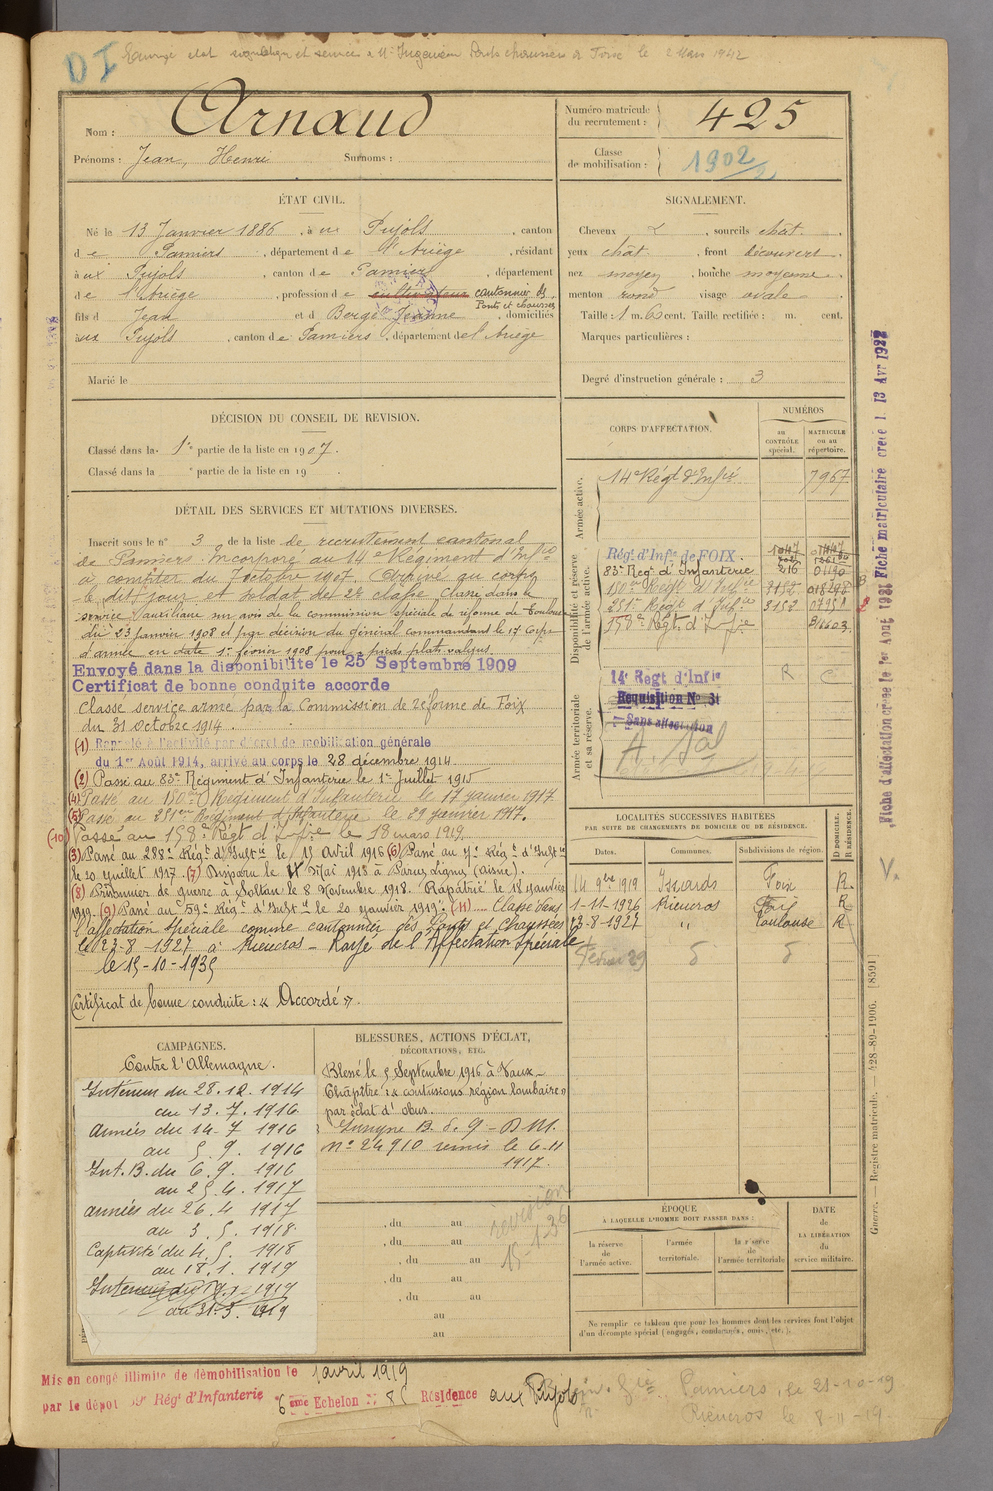 DI
état et service à Mr Ingénieur Ponts chaussées à Foix le 2 Mars 1942
Nom : Arnaud
Prénoms : Jean, Henri Surnoms :
Numéro matricule
du recrutement : 425
Classe
de mobilisation : 1902
ÉTAT CIVIL.
Né le 13 Janvier 1886, à Pujols, canton
de Pamiers, département de l'Ariège, résidant
à Pujols, canton de Pamiers, département
de l'Ariège, profession de cultivateur cantonnier des
Ponts et chaussées
fils d Jean et d Bergé Jeanne, domiciliés
Pujols, canton de Pamiers, département de l'Ariège
Marié le
SIGNALEMENT.
Cheveux, sourcils chât.
yeux chât., front découvert
nez moyen, bouche moyenne
menton rond visage ovale
Taille : 1 m. 60 cent. Taille rectifiée : m. cent.
Marques particulières :
Degré d'instruction générale : 3
DÉCISION DU CONSEIL DE REVISION.
Classé dans la 1re partie de la liste en 1907.
Classé dans la e partie de la liste en 19 .
DÉTAIL DES SERVICES ET MUTATIONS DIVERSES.
Inscrit sous le n° 3 de la liste de recrutement cantonal
de Pamiers Incorporé au 14e Régiment d'Infie
à compter du 7 octobre 1907. Arrivé au corps
le dit jour et soldat de 2e classe Classé dans le
service auxiliaire sur avis de la commission spéciale de réforme de Toulouse
du 23 janvier 1908 et par décision du Général commandant le 17 Corps
d'armée en date 1er février 1908 pour pieds plats valgus.
Envoyé dans la disponibilité le 25 Septembre 1909
Certificat de bonne conduite accordé
Classé service armé par la Commission de réforme de Foix
du 31 octobre 1914.
(1) Rappelé à l'activité par décret de mobilisation générale
du 1er Août 1914, arrivé au corps le 28 décembre 1914
(2) Passé au 83e Régiment d'Infanterie le 1er Juillet 1915
(4) Passé au 150e Régiment d'Infanterie le 17 janvier 1917
(5) Passé au 251e Régiment d'Infanterie le 29 janvier 1917.
(10) Passé au 158e Régt d'Infie le 18 mars 1919.
(3) Passé au 288e Régt d'Infie le 15 Avril 1916 (6) Passé au Régt d'Infie
le 20 juillet 1917 (7) Disparu le Mai 1918 à Parcy Tigny (aisne).
(8) Prisonnier de guerre à Soltau le 8 Novembre 1918. Rapatrié le 18 janvier
1919. (9) Passé au 59e Régt d'Infie le 20 janvier 1919. (11) Classé dans
l'affectation spéciale comme cantonnier des Ponts et chaussées
le 23-8-1927 à Rieucros - Rayé de l'Affectation Spéciale
le 15-10-1935
Certificat de bonne conduite : « Accordé ».
CORPS D'AFFECTATION.
NUMÉROS
au
CONTRÔLE
spécial.
MATRICULE
ou au
répertoire.
Armée active.
14e Régt d'Infie 7967
Disponibilité et réserve
de l'armée active.
Régt d'Infie de FOIX. 1047
83e Régt d'Infanterie 216 01190
150e Regt d'Infie 3152 018298
251e Regt d'Infie 3152
158e Regt d'Infie
Armée territoriale
et sa réserve.
14e Regt d'Infie R C
Requisition N° 31
Sans affectation
LOCALITÉS SUCCESSIVES HABITÉES
PAR SUITE DE CHANGEMENTS DE DOMICILE OU DE RÉSIDENCE.
Dates. Communes. Subdivisions de région. D DOMICILE. R RÉSIDENCE.
14 9bre 1919 Issards Foix R.
1-11-1926 Rieucros Foix R
23-8-1927 " Toulouse R
Février 29
CAMPAGNES.
Contre l'Allemagne.
Intérieur du 28.12.1914
au 13.7.1916
Armées du 14-7 1916
au 5.9.1916
Int. B. du 6.9.1916
au 25.4.1917
armées du 26.4 1917
au 3.5.1918
Captivité du 4.5.1918
au 18.1.1919
Intérieur du 19.1-1919
au 31-3.1919
BLESSURES, ACTIONS D'ÉCLAT,
DÉCORATIONS, ETC.
Blessé le 5 Septembre 1916 à Vaux-
Chapitre : « contusions région lombaire »
par éclat d'obus.
Insigne B. d. G - D.M.
n° 24910 remis le 6-11
1917.
révision
15-1-36
, du au
, du au
, du au
du au
, du au
au
au
ÉPOQUE
À LAQUELLE L'HOMME DOIT PASSER DANS :
la réserve
de
l'armée active.
l'armée
territoriale.
la réserve
de
l'armée territoriale
DATE
de
LA LIBÉRATION
du
service militaire.
Ne remplir ce tableau que pour les hommes dont les services font l'objet
d'un décompte spécial (engagés, condamnés, omis, etc.).
Fiche d'affectation créée le 1er Août 1921 Fiche matriculaire créée l. 13 Avr 1922
Guerre. — Registre matricule. — 428-89-1906. [8591]
Mis en congé illimité de démobilisation le 1 avril 1919
par le dépôt 59e Régt d'Infanterie 6eme Echelon N° Résidence aux Pujols
Pamiers, le 21-10-19
Rieucros le 8-11-19